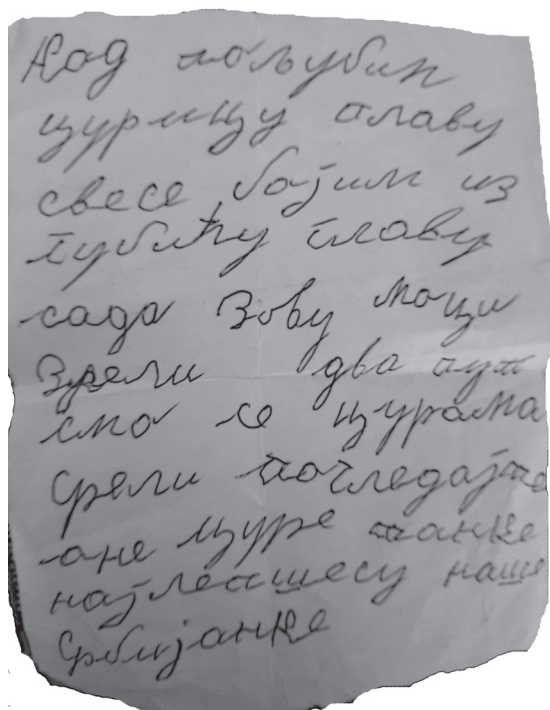 Кад пољубим
цурицу плаву
свесе бојим из
губићу главу
сада Зову моци
Зрели два пут
смо се цурама
срели погледајте
оне цуре танке
најлепшесу наше
Србијанке